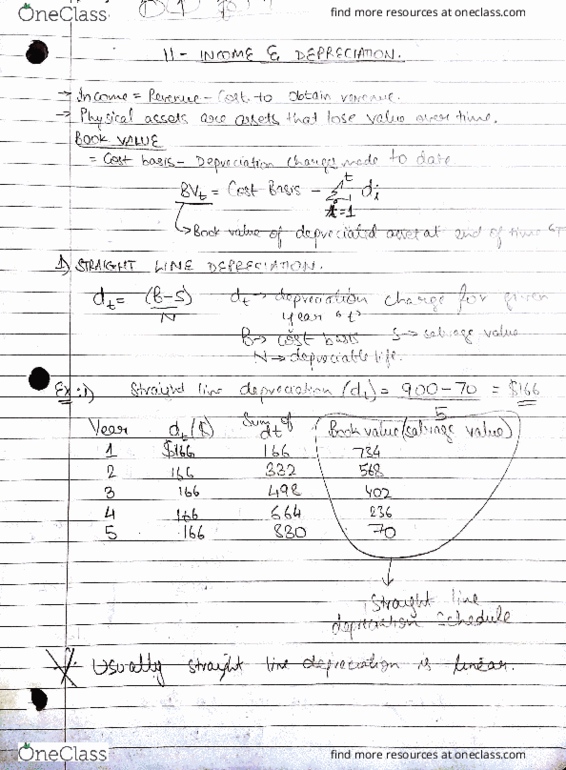 OneClass
find more resources at oneclass.com
11 - INCOME & DEPRECIATION.
→ Income = Revenue - Cost to obtain revenue.
→ Physical assets are assets that lose value over time.
BOOK VALUE
= Cost basis - Depreciation charge made to date
BVt = Cost Basis - Σ di
t
i=1
↳ Book value of depreciated asset at end of time "T"
1) STRAIGHT LINE DEPRECIATION.
dt = (B-S)/N dt → depreciation charge for given
year "t"
B → cost basis S → salvage value
N → depreciable life.
Ex:1) Straight line depreciation (dt) = 900-70 = $166
5
Year dt($) Sum of dt Book value (salvage value)
1 $166 166 734
2 166 332 568
3 166 498 402
4 166 664 236
5 166 830 70
Straight line
depreciation schedule
Usually straight line depreciation is linear.
OneClass
find more resources at oneclass.com